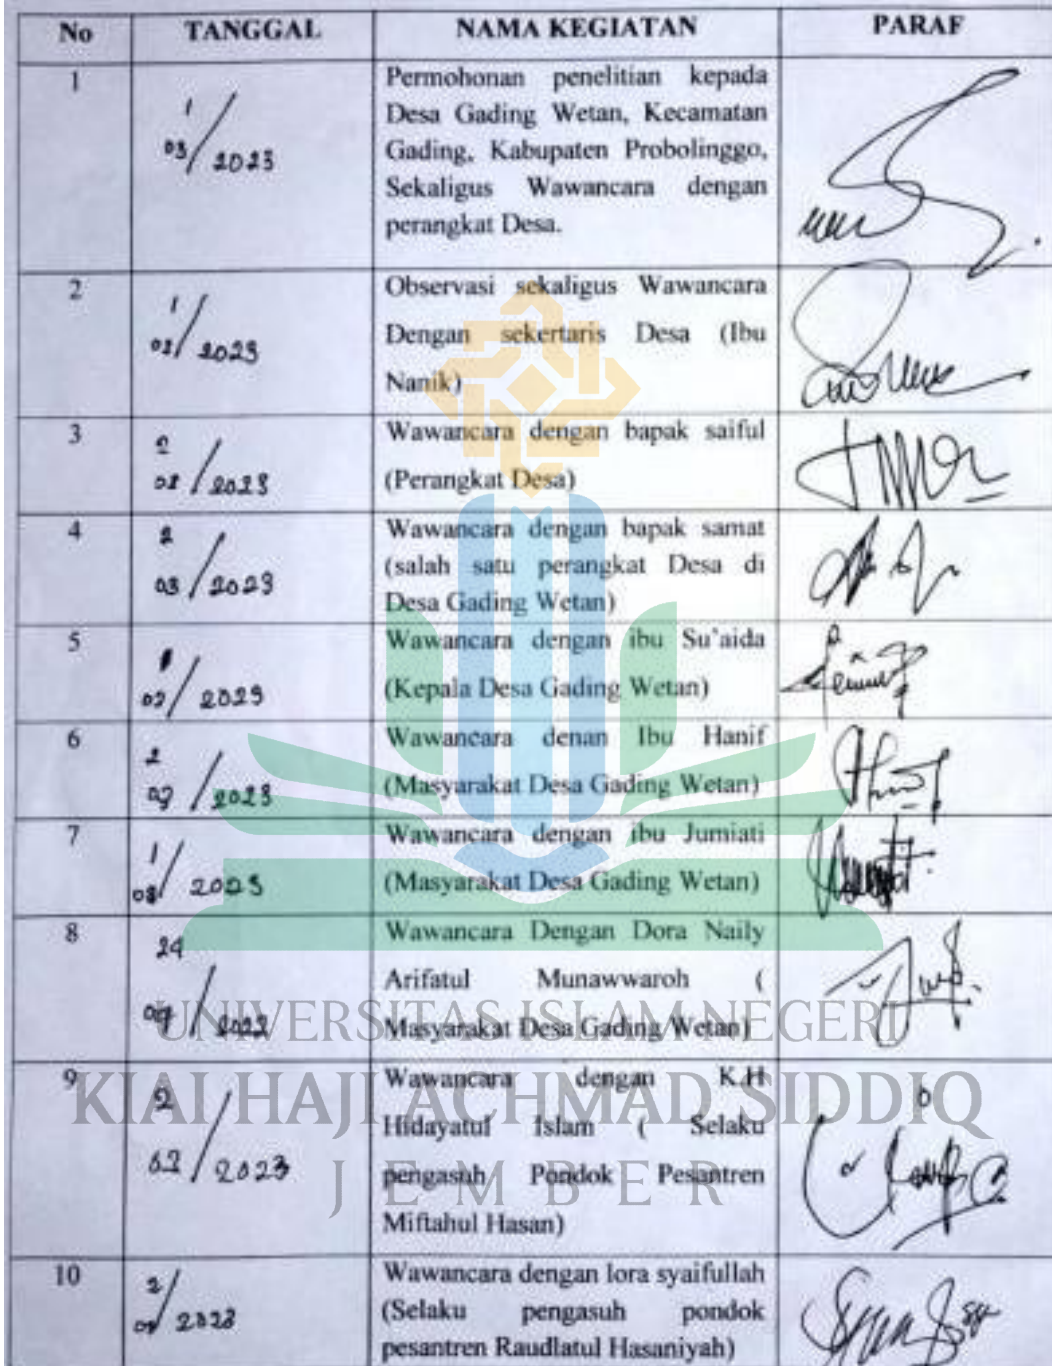 No TANGGAL NAMA KEGIATAN PARAF
1
1
03/2023
Permohonan penelitian kepada
Desa Gading Wetan, Kecamatan
Gading, Kabupaten Probolinggo,
Sekaligus Wawancara dengan
perangkat Desa.
2
1
2023
Observasi sekaligus Wawancara
Dengan sekertaris Desa (Ibu
Nanik)
3
2
2023
Wawancara dengan bapak saiful
(Perangkat Desa)
4
2
03/2023
Wawancara dengan bapak samat
(salah satu perangkat Desa di
Desa Gading Wetan)
5
2023
Wawancara dengan ibu Su'aida
(Kepala Desa Gading Wetan)
6
2
2023
Wawancara denan Ibu Hanif
(Masyarakat Desa Gading Wetan)
7
1
2023
Wawancara dengan ibu Jumiati
(Masyarakat Desa Gading Wetan)
8
24
Wawancara Dengan Dora Naily
Arifatul Munawwaroh (
Masyarakat Desa Gading Wetan)
9
2
2023
Wawancara dengan K.H
Hidayatul Islam ( Selaku
pengasuh Pondok Pesantren
Miftahul Hasan)
10
2
2023
Wawancara dengan lora syaifullah
(Selaku pengasuh pondok
pesantren Raudlatul Hasaniyah)
UNIVERSITAS ISLAM NEGERI
KIAI HAJI ACHMAD SIDDIQ
JEMBER